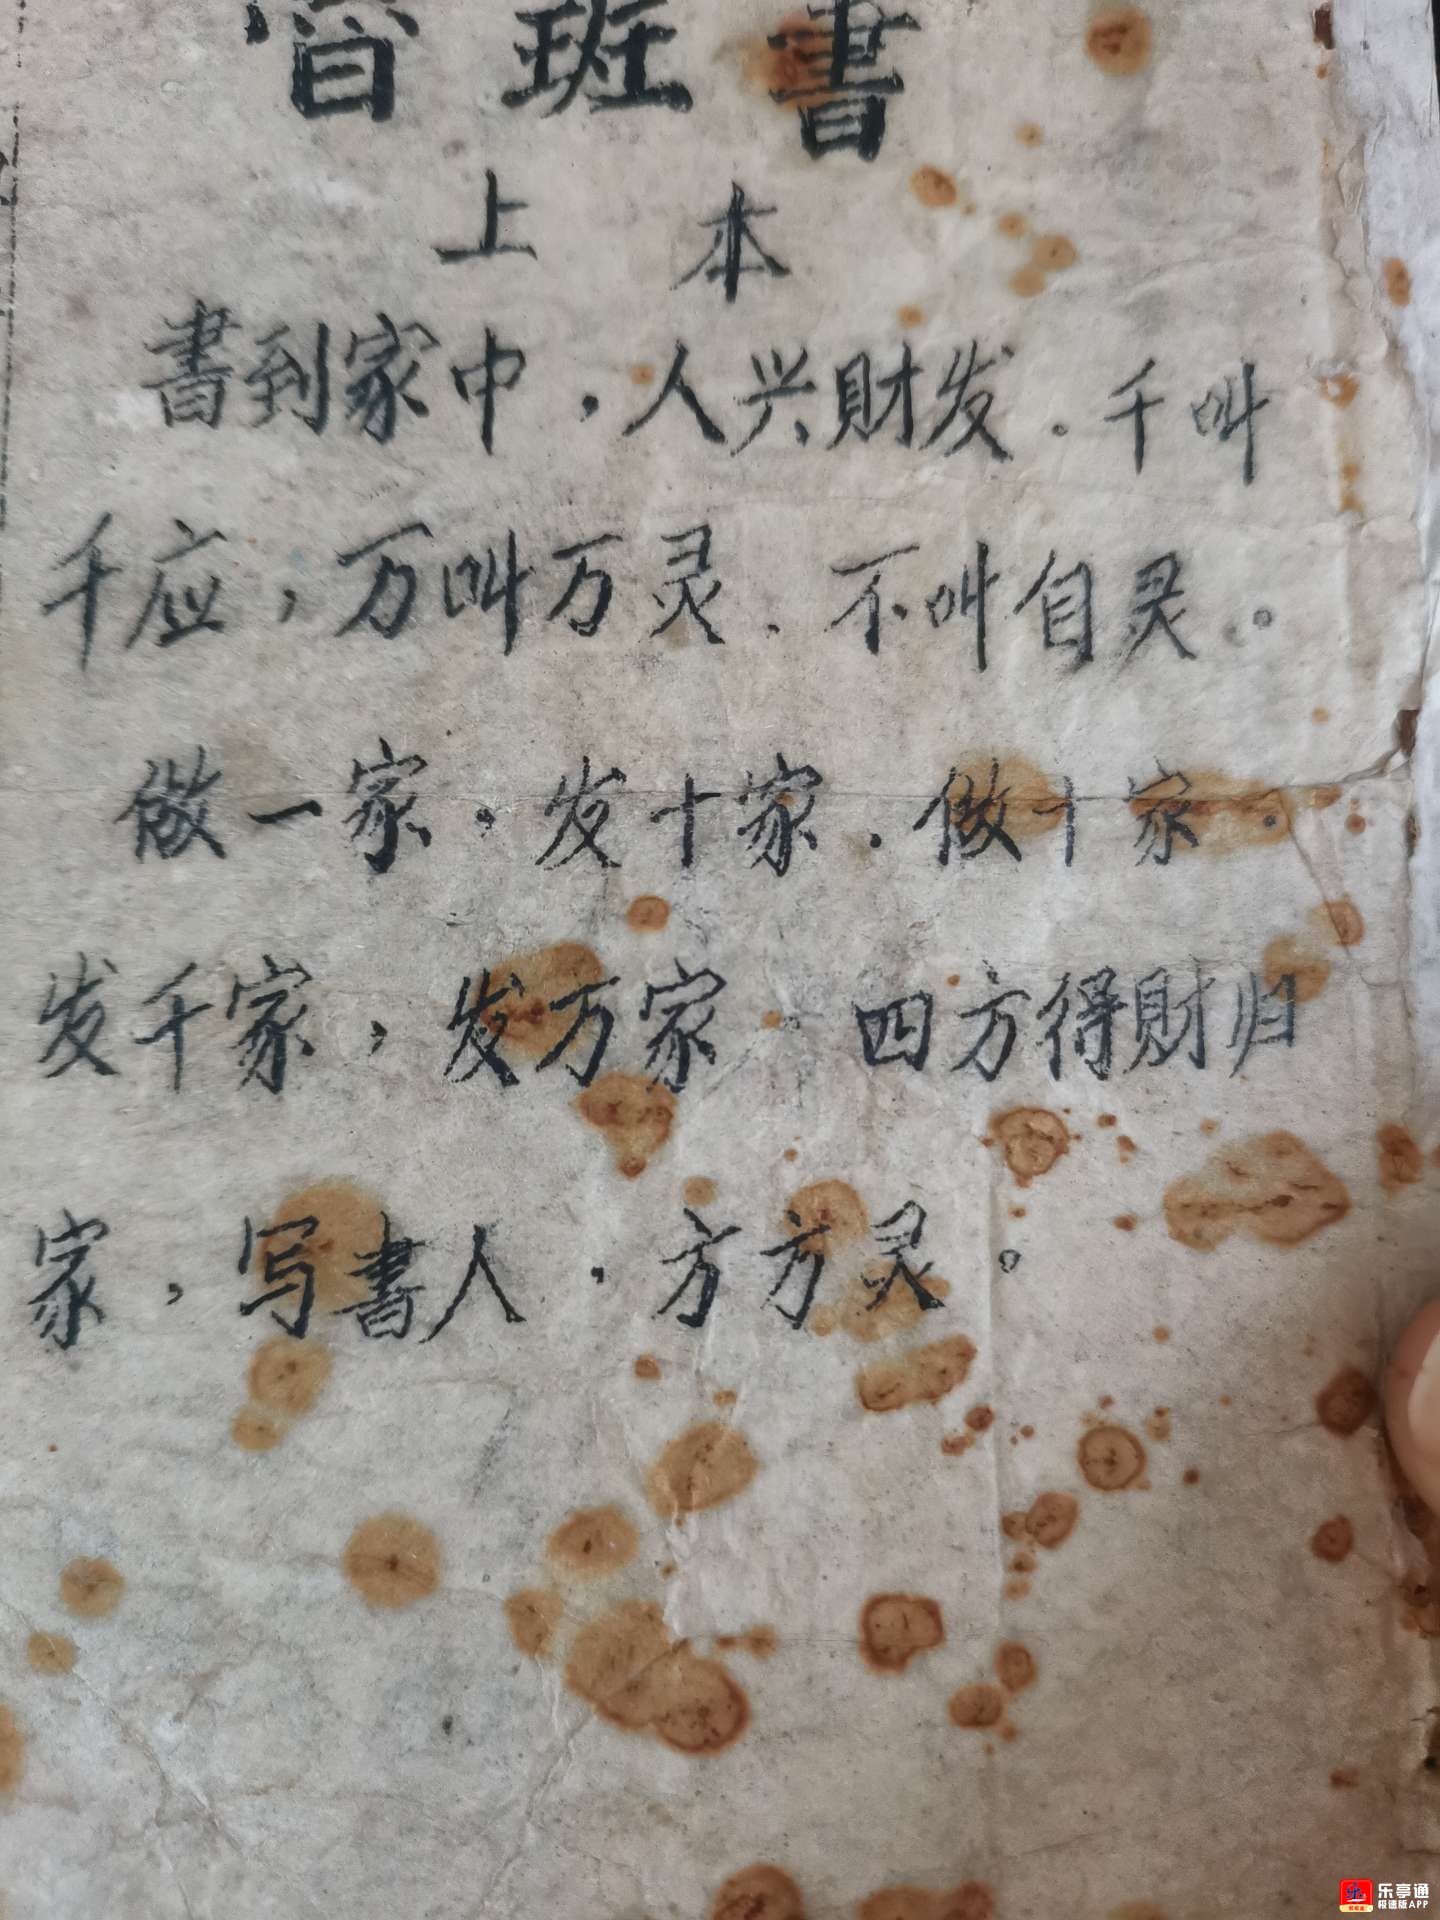 班書
上本
書到家中，人兴財发．千叫
千应，万叫万灵．不叫自灵。
做一家．发十家．做十家．
发千家，发万家 四方得財归
家，写書人．方方灵。
乐亭通
极速版APP